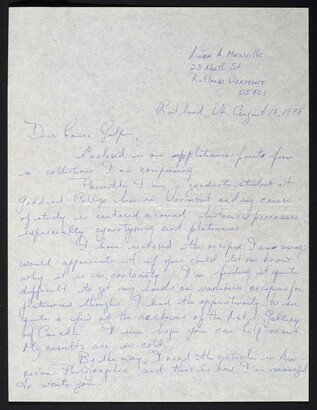 A. Melville
23 North St
Rutland Vermont
05701
Rutland, Vt. August 17, 1978
Dear Laura Gilpin,
Enclosed is one platinum print from
a collection I am composing.
Presently I am a graduate student at
Goddard College here in Vermont and my course
of study is centered around historical processes
especially cyanotyping and platinum.
I have enclosed the recipes I am using;
would appreciate it if you could let me know
why it is so contrasty. I'm finding it quite
difficult to get my hands on various recipes for
platinum though I had the opportunity to see
quite a few at the archives of the Nat'l Gallery
of Canada. I sure hope you can help me out
My results are so cold.
By the way, I read the article in Ame
rican Photographer and this is how I'm
to write you.